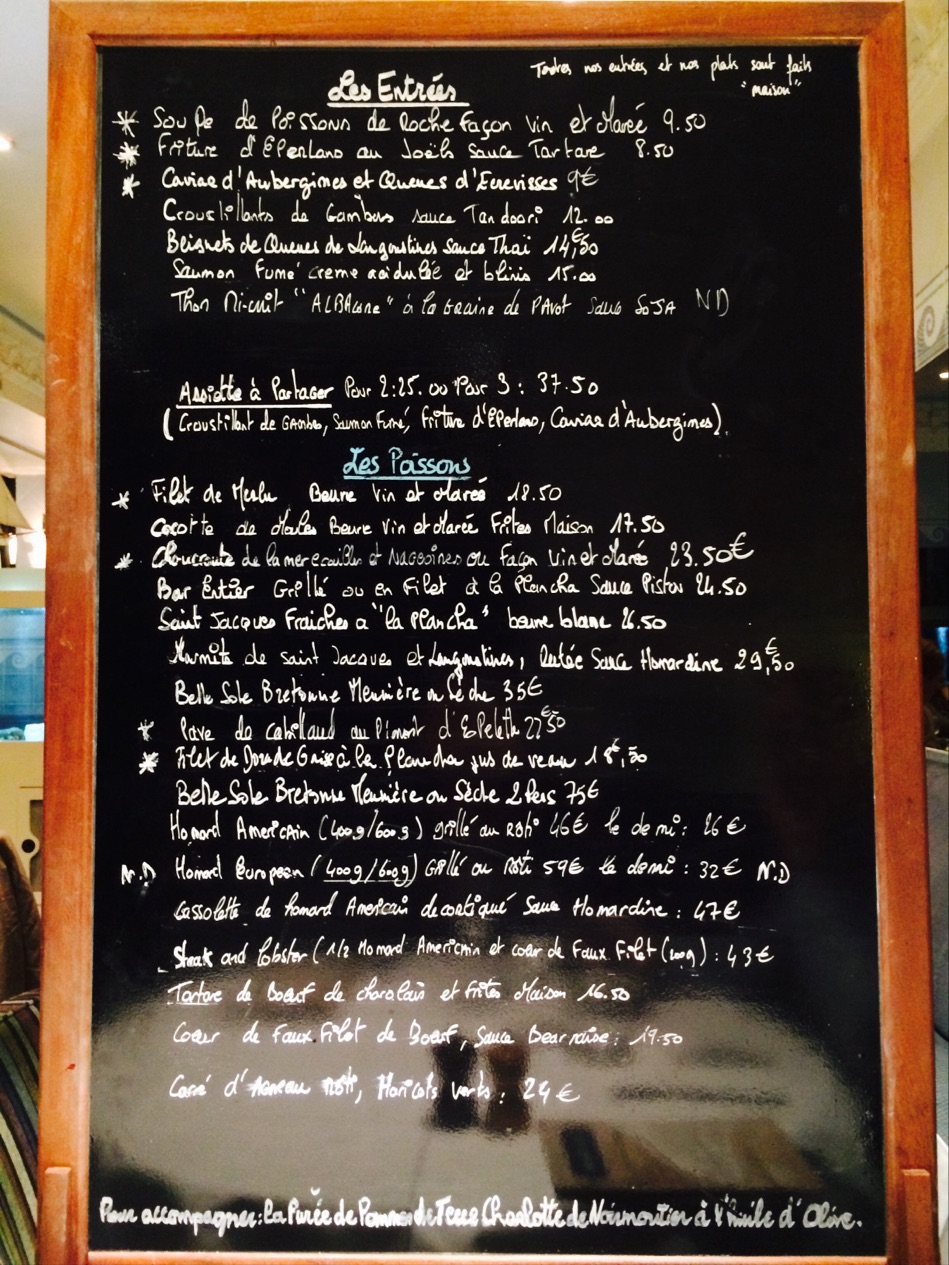 Toutes nos entrées et nos plats sont faits
"maison"
Les Entrées
* Soupe de Poissons de Roche Façon Vin et Marée 9.50
* Friture d'Eperlans au Sauce Tartare 8.50
* Caviar d'Aubergines et Queues d'Ecrevisses 9€
Croustillants de Gambas sauce Tandoori 12.00
Beignets de Queues de Langoustines Sauce Thaï 14,€50
Saumon Fumé creme acidulée et blinis 15.00
Thon Mi-cuit "ALBAcore" à la Graine de PAvot Sauce SOJA ND
Assiette à Partager Pour 2:25. ou Pour 3: 37.50
(Croustillant de Gambas, Saumon Fumé, Friture d'Eperlans, Caviar d'Aubergines).
Les Poissons
* Filet de Merlu Beure Vin et Marée 18.50
Cocotte de Moules Beure Vin et Marée Frites Maison 17.50
* Choucroute de la mer ou Façon Vin et Marée 23.50€
Bar Entier Grillé ou en Filet à la Plancha Sauce Pistou 24.50
Saint Jacques Fraiches a "la Plancha" beurre blanc 26.50
Marmite de Saint Jacques et Langoustines, Sauce Homardine 29,€50
Belle Sole Bretonne Meunière ou Sèche 35€
* Pave de cabillaud au Piment d'EPelette 22€50
* Filet de Dorade Grise à la Plancha jus de veau 18€,50
Belle Sole Bretonne Meunière ou Sèche 2 Pers 75€
Homard Americain (400g/600g) grillé ou Rôti 46€ le demi: 26€
N.D Homard European (400g/600g) Grillé ou Rôti 59€ le demi: 32€ N.D
Cassolette de homard Americain decortiqué Sauce Homardine: 47€
Steak and Lobster (1/2 Homard Americain et coeur de Faux Filet (200g): 43€
Tartare de Boeuf de charolais et frites Maison 16.50
Coeur de Faux Filet de Boeuf, Sauce Bearnaise: 19.50
Carré d'Agneau Rôti, Haricots verts: 24€
Pour accompagner: la Purée de Pommes de Terre Charlotte de Noirmoutier à l'huile d'Olive.